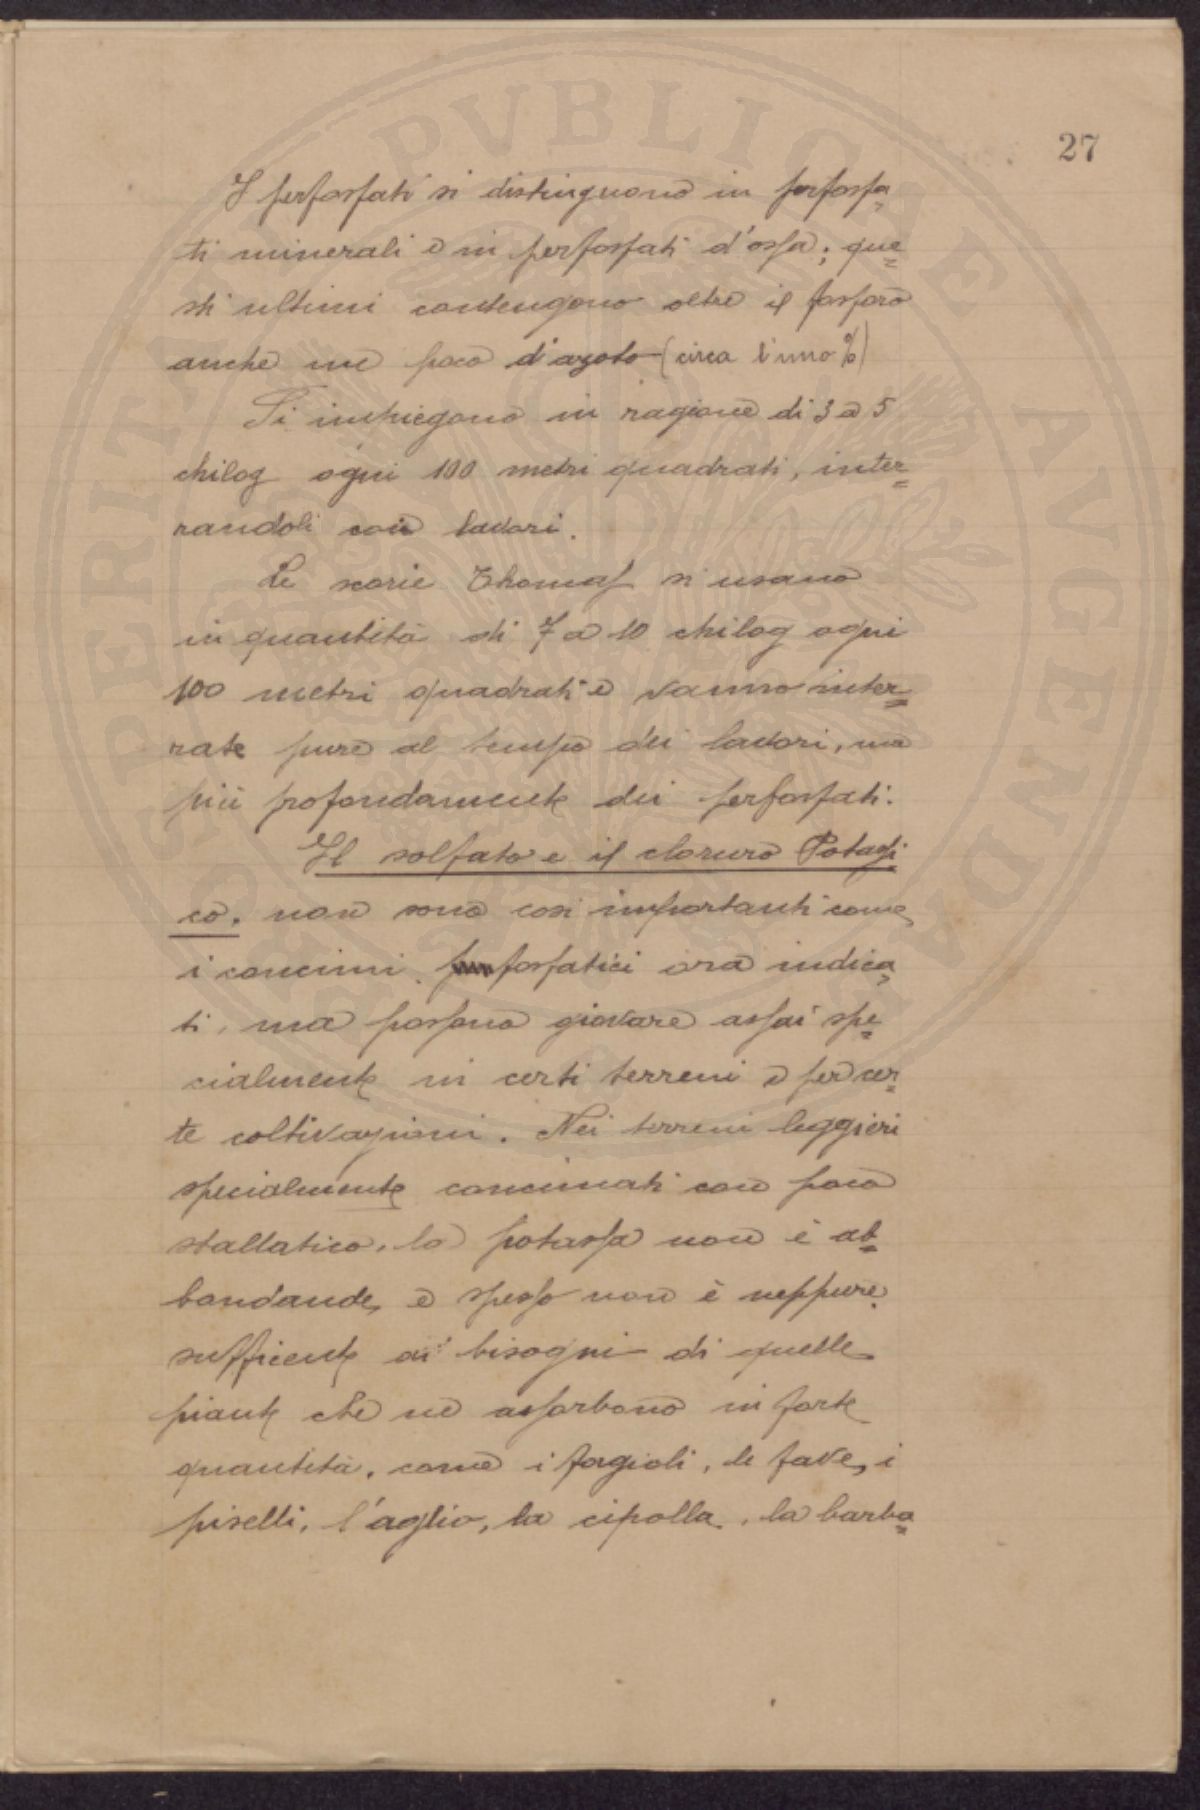 27
I perfosfati si distinguono in perfosfa=
ti minerali e in perfosfati d'ossa; que=
sti ultimi contengono oltre il fosforo
anche un poco d'azoto (circa l'uno %)
Si impiegano in ragione di 3 a 5
chilog ogni 100 metri quadrati, inter=
randoli coi lavori.
Le scorie Thomas si usano
in quantità di 7 a 10 chilog ogni
100 metri quadrati e vanno inter=
rate pure al tempo dei lavori, ma
più profondamente dei perfosfati.
Il solfato e il cloruro Potassi
co. non sono così importanti come
i concimi fosfatici ora indica=
ti, ma possono giovare assai spe=
cialmente in certi terreni e per cer=
te coltivazioni. Nei terreni leggieri
specialmente concimati con poco
stallatico, la potassa non è ab=
bondande, e spesso non è neppure
sufficente ai bisogni di quelle
piante che ne assorbono in forte
quantità, come i fagioli, le fave, i
piselli, l'aglio, la cipolla, la barba=
PERITAE PVBLICAE AVGENDAE